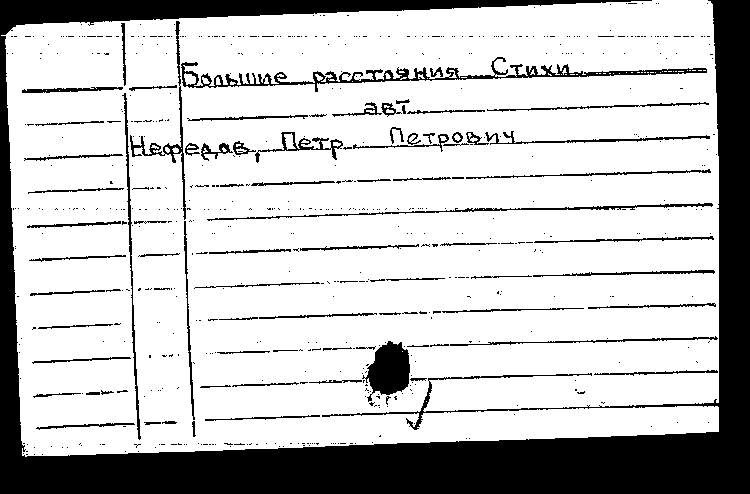 Большие расстояния Стихи
авт.
Нефедов, Петр Петрович